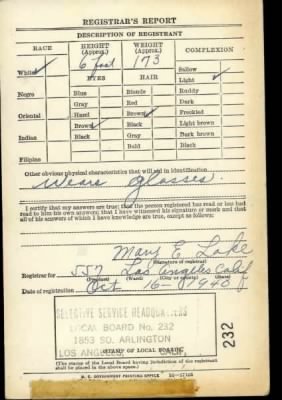 REGISTRAR'S REPORT
DESCRIPTION OF REGISTRANT
RACE HEIGHT (Approx.) WEIGHT (Approx.) COMPLEXION
6 foot 173
White ✓ Sallow
EYES HAIR Light ✓
Negro Blue Blonde Ruddy
Gray Red Dark
Oriental Hazel Brown ✓ Freckled
Brown ✓ Black Light brown
Indian Black Gray Dark brown
Bald Black
Filipino
Other obvious physical characteristics that will aid in identification
Wears glasses.
I certify that my answers are true; that the person registered has read or has had
read to him his own answers; that I have witnessed his signature or mark and that
all of his answers of which I have knowledge are true, except as follows:
Mary E. Lake
(Signature of registrar)
Registrar for 557 Los Angeles Calif
(Precinct) (Ward) (City or county) (State)
Date of registration Oct 16- 1940
SELECTIVE SERVICE HEADQUARTERS
LOCAL BOARD No. 232
1853 SO. ARLINGTON
LOS ANGELES, CALIF.
232
(STAMP OF LOCAL BOARD)
(The stamp of the Local Board having jurisdiction of the registrant
shall be placed in the above space.)
U. S. GOVERNMENT PRINTING OFFICE